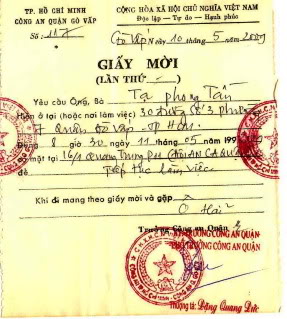 TP. HỒ CHÍ MINH
CÔNG AN QUẬN GÒ VẤP
Số: 117
CỘNG HÒA XÃ HỘI CHỦ NGHĨA VIỆT NAM
Độc lập - Tự do - Hạnh phúc
Gò Vấp Ngày 10 tháng 5 năm
GIẤY MỜI
(LẦN THỨ - )
Yêu cầu Ông, Bà Tạ Phong Tần
Hiện ở tại (hoặc nơi làm việc) 30 đường số 3 phường
7 Quận Gò Vấp - TP HCM.
Đúng 8 giờ 30 ngày 11 tháng 05 năm 199
Có mặt tại 16/1 Quang Trung P11
để Tiếp tục làm việc
Khi đi mang theo giấy mời và gặp Ô Hải
Trưởng Công an Quận
KT/TRƯỞNG CÔNG AN QUẬN
PHÓ TRƯỞNG CÔNG AN QUẬN
Thượng tá: Đặng Quang Đức